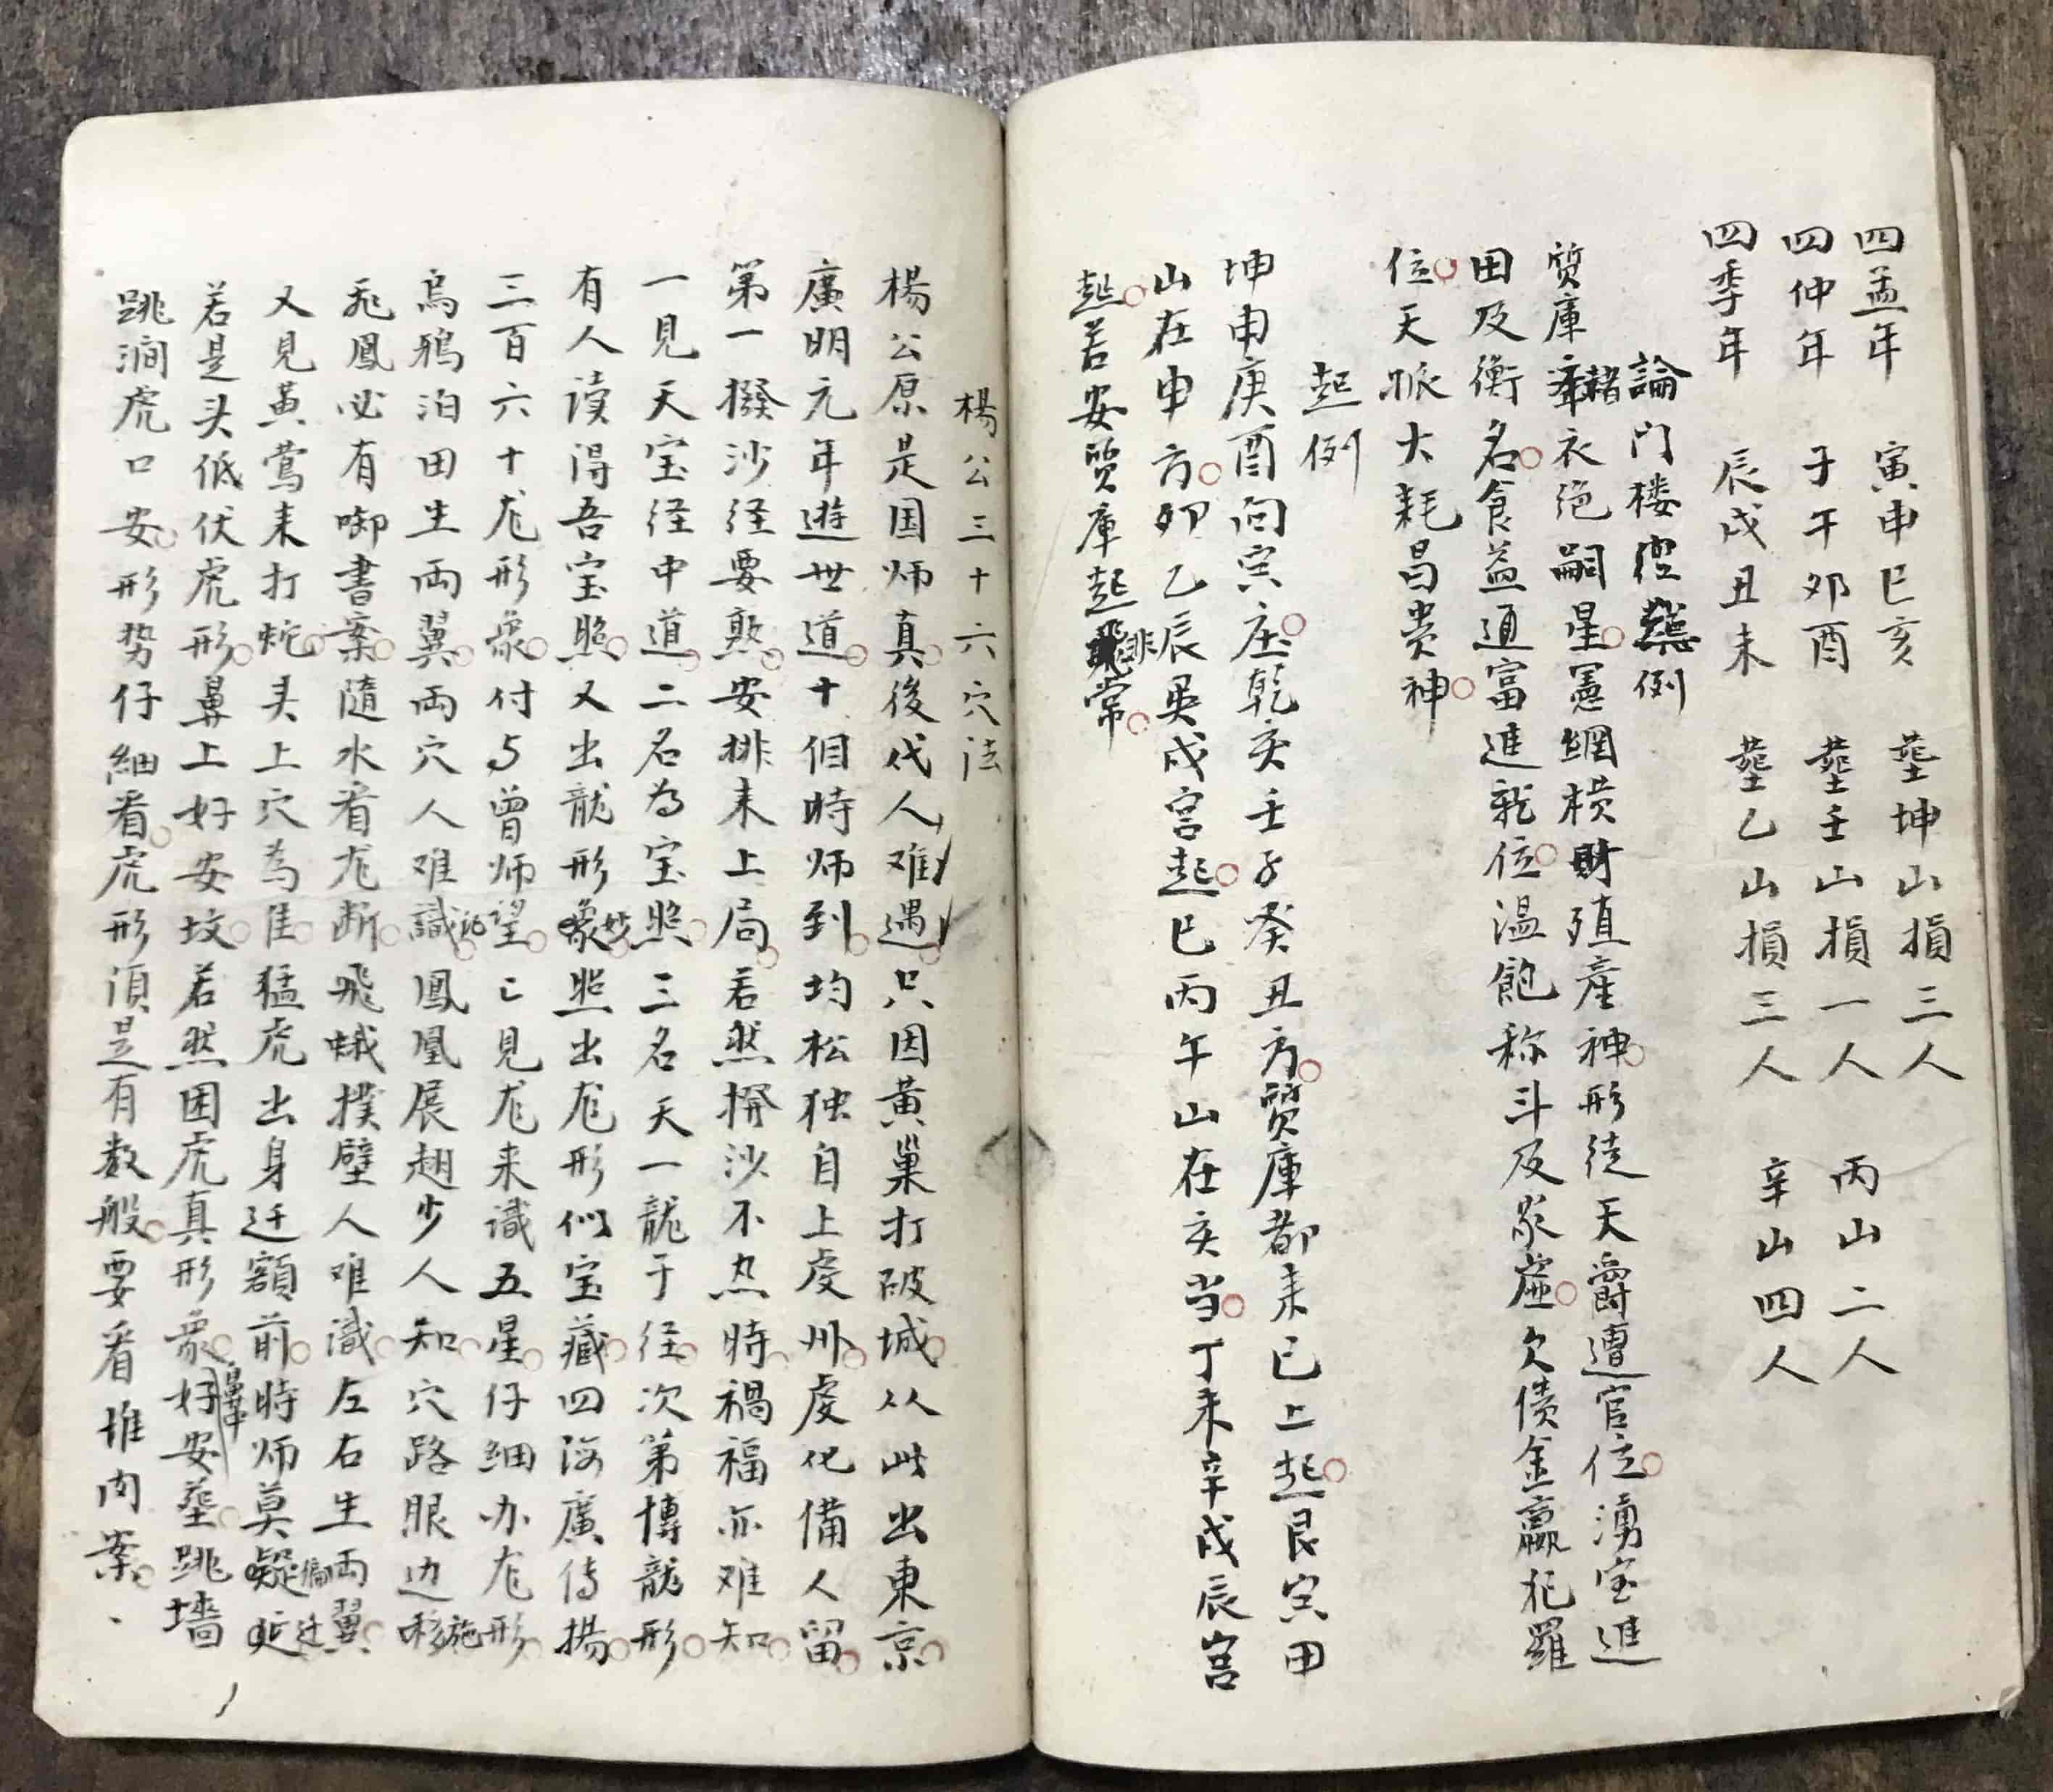 四孟年 寅申巳亥 塟坤山損三人
四仲年 子午卯酉 塟壬山損一人 丙山二人
四季年 辰戌丑未 塟乙山損三人 辛山四人
論门楼 例
質庫 赭衣绝嗣星 網横財殖産神 形徒天爵遭官位 湧宝進
田及衡名 食益通富進 位 温飽称斗及 虚 欠债金赢犯羅
位 天 大耗昌贵神
起例
坤申庚酉问寅庄 乾亥壬子癸丑方 質庫都来已上起 艮寅甲
山在申方 卯乙辰巽戌宫起 巳丙午山在亥当 丁未辛戌辰宫
起 若安質庫起 非常
楊公三十六穴法
楊公原是国师真 後代人难遇 只因黄巢打破城 从此出東京
廣明元年遊世道 十佀時师到 均松独自上虔州 虔化備人留
第一撥沙经要熟 安排来上局 若然撥沙不 時 禍福亦难知
一見天宝径中道 二名为宝照 三名天一龍于径 次第博龍形
有人读得吾宝照 又出龍形 妙 照出尨形似宝藏 四海廣传揚
三百六十尨形象 付与曾师望 己見尨来識五星 仔细办尨形
烏鴉泊田生両翼 両穴人难識 鳳凰展翅少人知 穴路眼边 施
飛鳳必有啣書案 隨水看尨断 飛蛾撲壁人难識 左右生両翼
又見黄鶯来打蛇 头上穴為佳 猛虎出身迁額前 時师莫 偏迁
若是头低伏虎形 鼻上好安坟 若然困虎真形象 鼻中好安塟 跳墙
跳澗虎口安 形势仔細看 虎形頂是有数般 要看堆肉案